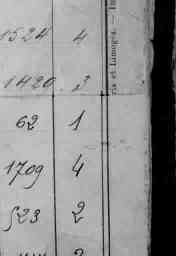 1524 4
1420 3
62 1
1709 4
523 2
2
ris et Limoges. — Im